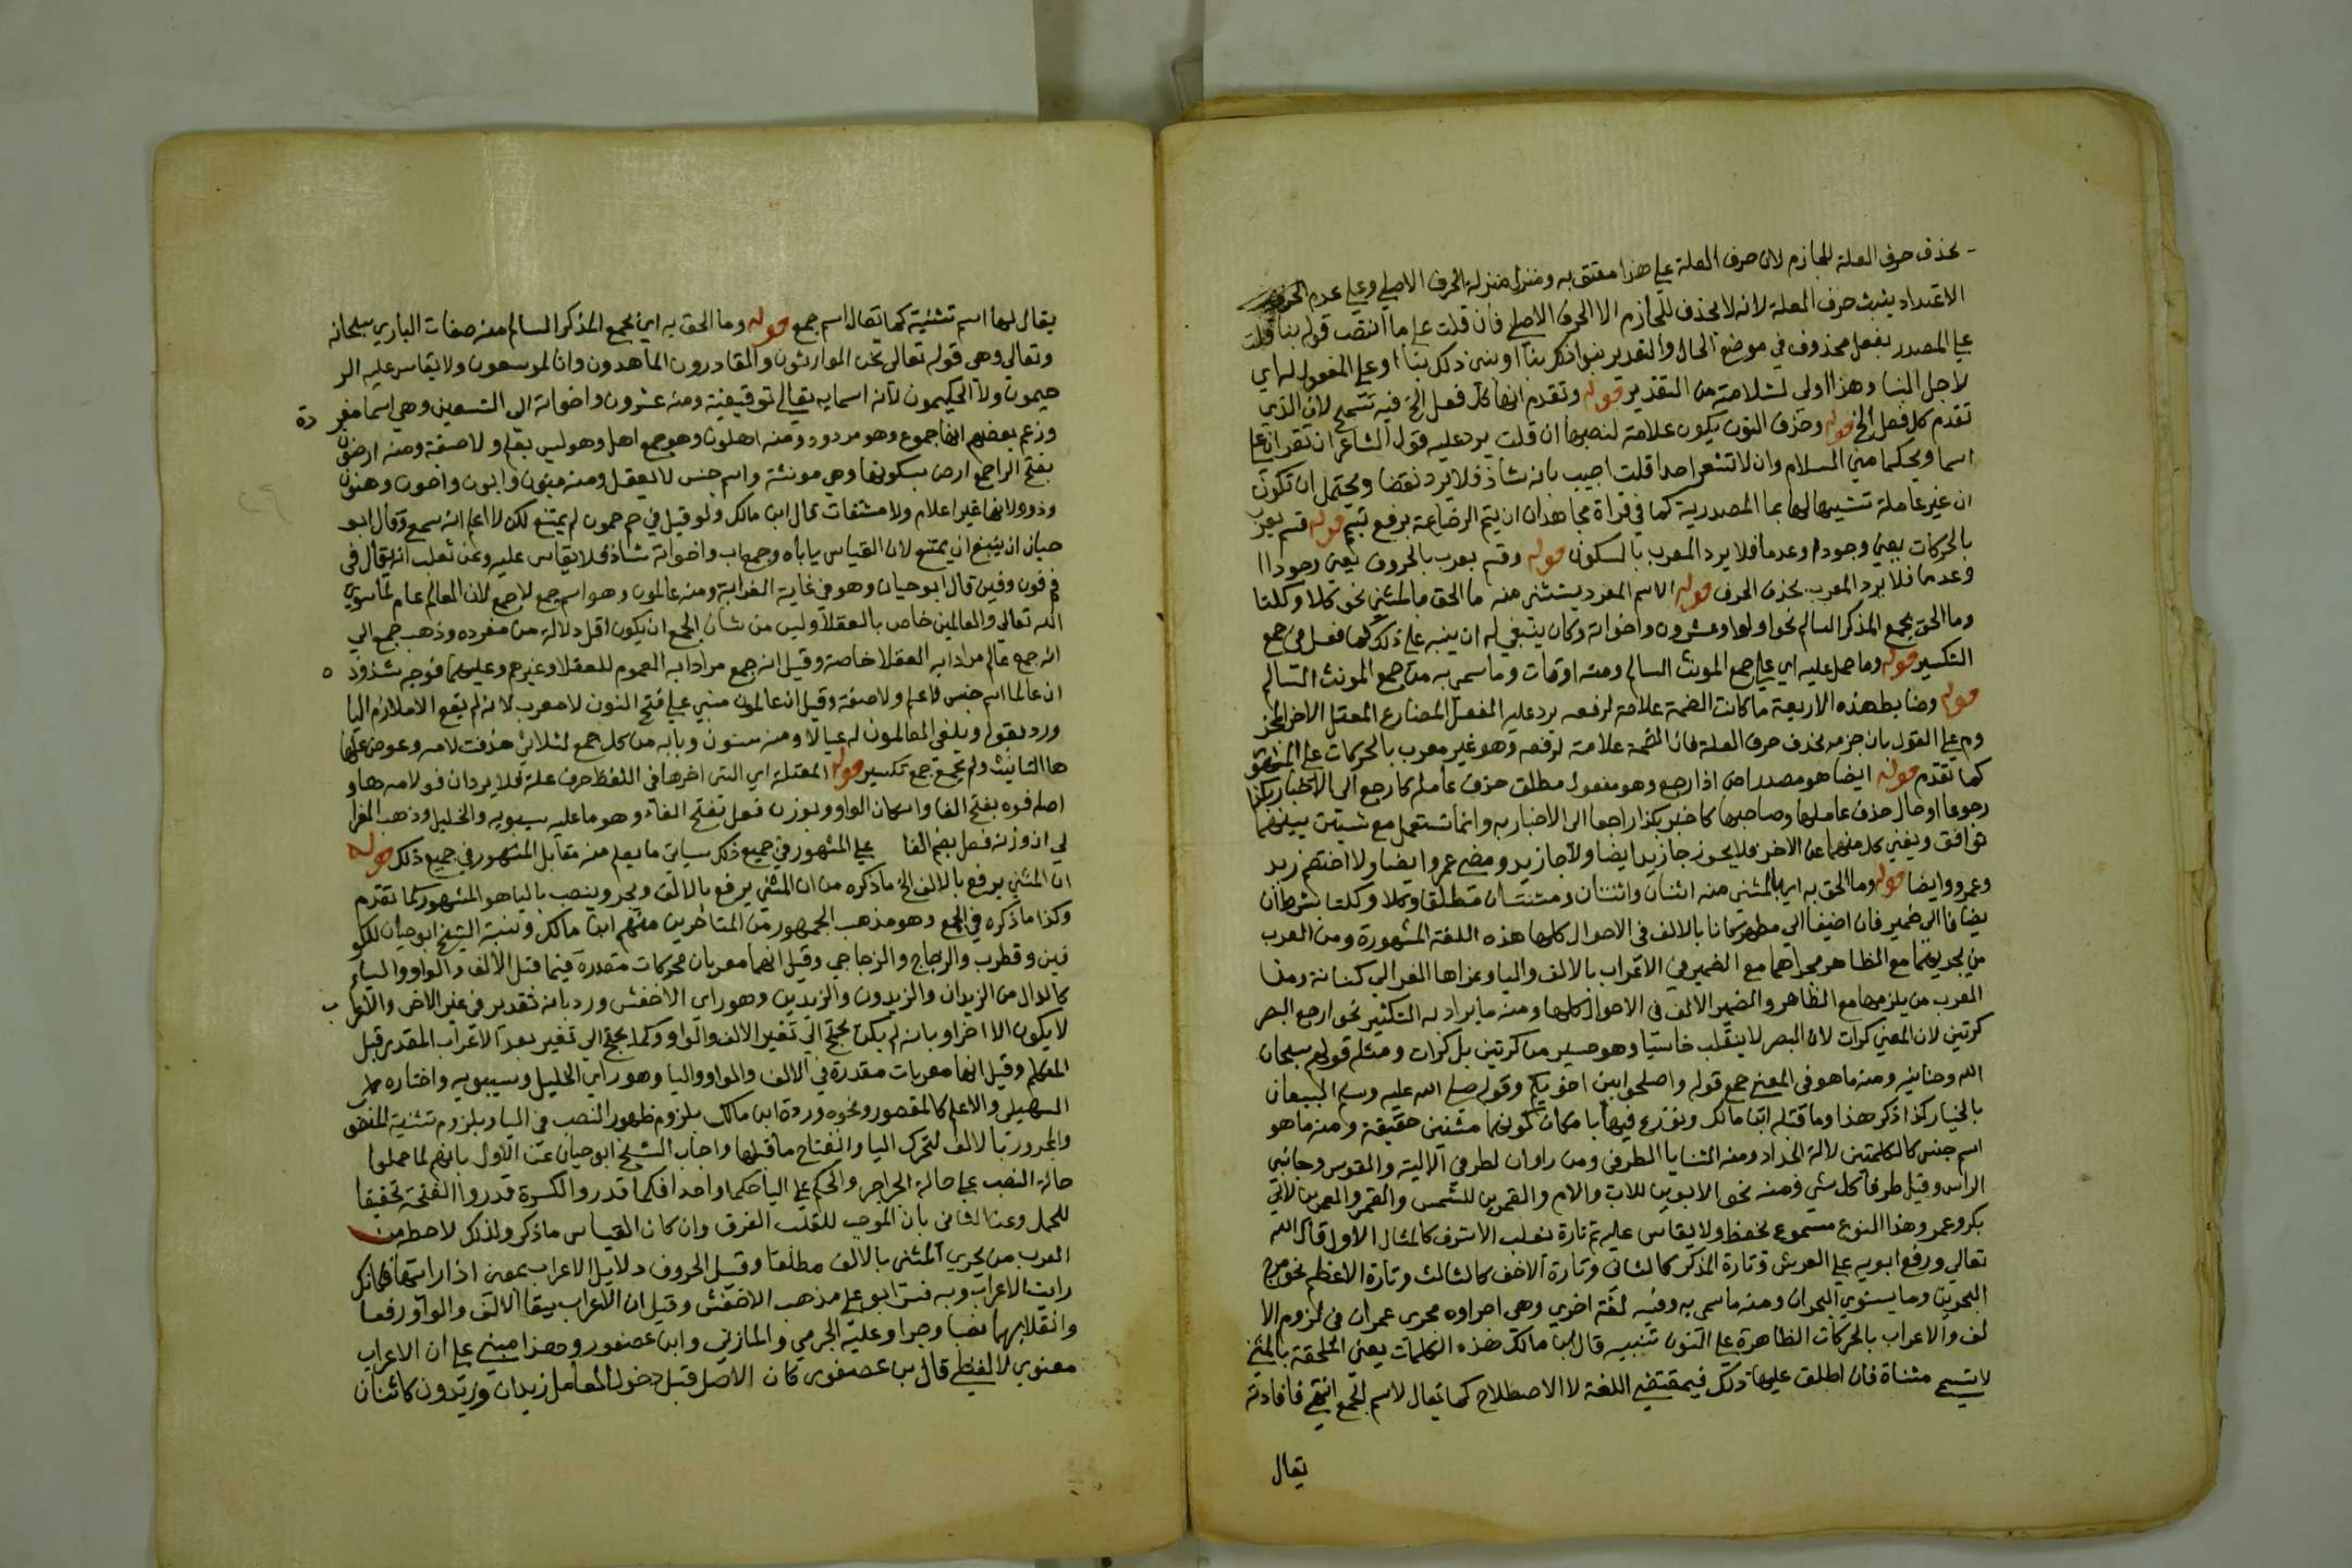 بحذف حرف العلة للجازم لان حرف العلة علي هذا معتق به ومنزل منزلة الحرف الاصلي وعلي عدم
الاعتداد يثبت حرف العلة لانه لا يحذف للجازم الا الحرف الاصلي فان قلت علي ما انتصب قوله بنا قلت
علي المصدر بفعل محذوف في موضع الحال والتقدير بنوا ذكر بنا او بني ذلك بنا او علي المفعول له اي
لاجل البنا وهذا اولي لسلامته من التقدير قوله وتقدم انها كل فعل الخ فيه تسمح لان الذي
تقدم كل فعل الخ قوله وحذف النون يكون علامة لنصبها ان قلت يرد عليه قول الشاعر ان تقران علي
اسما ويحكما مني السلام وان لا تشعرا احدا قلت اجيب بانه شاذ فلا يرد نقضا ويحتمل ان تكون
ان غير عاملة تشبيها لها بما المصدرية كما في قراة مجاهد ان يتم الرضاعة برفع يتم قوله قسم يعرب
بالحركات يعني وجودا وعدما فلا يرد المعرب بالسكون قوله وقسم يعرب بالحروف يعني وجودا
وعدما فلا يرد المعرب بحذف الحرف قوله الاسم المفرد يستثني منه ما الحق بالمثني نحو كلا وكلتا
وما الحق بجمع المذكر السالم نحو اولوا وعشرون واخواته وكان ينبغي له ان ينبه علي ذلك كما فعل في جمع
التكسير قوله وما حمل عليه اي علي جمع المونث السالم ومنه اولات وما سمي به من جمع المونث السالم
قوله وضابط هذه الاربعة ما كانت الضمة علامة لرفعه يرد عليه الفعل المضارع المعتل الاخر
علي القول بان جزمه بحذف حرف العلة فان الضمة علامة لرفعه وهو غير معرب بالحركات علي
كما تقدم قوله ايضا هو مصدر اض اذا رجع وهو مفعول مطلق حذف عامله كارجع الي الاخبار بكذا
رجوعا او حال حذف عاملها وصاحبها كاخبر بكذا راجعا الي الاخبار به وانما تستعمل مع شيئين بينهما
توافق ويغني كل منهما عن الاخر فلا يجوز جا زيد ايضا ولا جا زيد ومضي عمرو ايضا ولا اختصم زيد
وعمرو ايضا قوله وما الحق به اي بالمثني منه اثنان واثنتان وثنتان مطلقا وكلا وكلتا بشرط ان
يضافا الي ضمير فان اضيفا الي مظهر كانا بالالف في الاحوال كلها هذه اللغة المشهورة ومن العرب
من يجريهما مع الظاهر مجراهما مع الضمير في الاعراب بالالف واليا وعزاها الفرا الي كنانة ومن
العرب من يلزمها مع الظاهر والضمير الالف في الاحوال كلها ومنه ما يراد به التكثير نحو ارجع البصر
كرتين لان المعني كرات لان البصر لا ينقلب خاسئا وهو حسير من كرتين بل كرات ومثله قولهم سبحان
الله وحنانيه ومنه ما هو في المعني جمع قوله واصلحوا بين اخويكم وقوله صلي الله عليه وسلم البيعان
بالخيار كذا ذكر هذا وما قبله ابن مالك ونوزع فيها بامكان كونهما مثنيين حقيقة ومنه ما هو
اسم جنس كالكلبتين لالة الحداد ومنه الثنايا الطرفي ومن راوان لطرفي الالية والقوس وجانبي
الراس وقيل طرفا كل شي ومنه نحو الابوين للاب والام والقمرين للشمس والقمر والعمرين لابي
بكر وعمر وهذا النوع مسموع يحفظ ولا يقاس عليه ثم تارة يغلب الاشرف كالمثال الاول قال الله
تعالي ورفع ابويه علي العرش وتارة المذكر كالثاني وتارة الاخف كالثالث وتارة الاعظم نحو مرج
البحرين وما يستوي البحران ومنه ما سمي به وفيه لغة اخري وهي اجراوه مجري عمران في لزوم الا
لف والاعراب بالحركات الظاهرة علي النون تنبيه قال ابن مالك هذه الكلمات يعني الملحقة بالمثني
لا تسمي مثناة فان اطلق عليها ذلك فبمقتضي اللغة لا الاصطلاح كما يقال لاسم الجمع انتهي فافاد انه
يقال
يقال لها اسم تثنية كما يقال اسم جمع قوله وما الحق به اي بجمع المذكر السالم منه صفات الباري سبحانه
وتعالي وهي قوله تعالي نحن الوارثون والقادرون الماهدون وانا لموسعون ولا يقاس عليه الر
حيمون ولا الحكيمون لان اسمايه تعالي توقيفية ومنه عشرون واخواته الي التسعين وهي اسما مفر دة
وزعم بعضهم انها جموع وهو مردود ومنه اهلون وهو جمع اهل وهو ليس بعلم ولا صفة ومنه ارضون
بفتح الرا جمع ارض بسكونها وهي مونثة واسم جنس لا يعقل ومنه بنون وابون واخون وهنون
وذوو لانها غير اعلام ولا مشتقات قال ابن مالك ولو قيل في حم حمون لم يمتنع لكن لا اعلم انه سمع وقال ابو
حيان ان ينبغي ان يمتنع لان القياس ياباه وجمع اب واخواته شاذ فلا يقاس عليه وعن ثعلب انه يقال في
فم فون وفين قال ابو حيان وهو في غاية الغرابة ومنه عالمون وهو اسم جمع لا جمع لان العالم عام لما سوي
الله تعالي والعالمين خاص بالعقلا وليس من شان الجمع ان يكون اقل دلالة من مفرده وذهب جمع الي
انه جمع عالم مرادا به العقلا خاصة وقيل انه جمع مرادا به العموم للعقلا وغيرهم وعليهما فوجه شذوذه
ان عالما اسم جنس لا علم ولا صفة وقيل ان عالمون مبني علي فتح النون لا معرب لانه لم يقع الا ملازم اليا
ورد بقوله ويلفي العالمون له عيالا ومنه سنون وبابه من كل جمع لثلاثي حذفت لامه وعوض عنها
ها التانيث ولم يجمع جمع تكسير قوله المعتلة اي التي اخرها في اللفظ حرف علة فلا يرد ان فو لامه ها و
اصله فوه بفتح الفا واسكان الواو وبوزن فعل بفتح الفاء وهو ما عليه سيبويه والخليل وذهب الفرا
لي ان وزنه فعل بضم الفا علي المشهور في جميع ذلك سياتي ما يعلم منه مقابل المشهور في جميع ذلك قوله
ان المثني يرفع بالالف الخ ما ذكره من ان المثني يرفع بالالف ويجر وينصب باليا هو المشهور كما تقدم
وكذا ما ذكره في الجمع وهو مذهب الجمهور من المتاخرين منهم ابن مالك ونسبة الشيخ ابو حيان للكو
فيين وقطرب والزجاج والزجاجي وقيل انهما معربان بحركات مقدرة فيما قبل الالف والواو واليا
كالدال من الزيدان والزيدون والزيدين وهو راي الاخفش ورد بانه تقدير في غير الاخر والاعرا ب
لا يكون الا اخرا وبانه لم يكن يحتج الي تغير الالف والواو وكما يحتج الي تغير بعد الاعراب المقدر قبل
المتكلم وقيل انها معربات مقدرة في الالف والواو واليا وهو راي الخليل وسيبويه واختاره
السهيلي والاعلم كالمقصور ونحوه ورده ابن مالك بلزوم ظهور النصب في اليا وبلزوم تثنية المنصو
والمجرور بالالف لتحرك اليا وانفتاح ما قبلها واجاب الشيخ ابو حيان عن الاول بانهم لما حملوا
حالة النصب علي حالة الجر اجروا الحكم علي اليا حكما واحدا فكما قدروا الكسرة قدروا الفتحة تحقيقا
للحمل وعن الثاني بان الموجب للقلب الفرق وان كان القياس ما ذكر ولذلك لاحظه من
العرب من يجري المثني بالالف مطلقا وقيل الحروف دلايل الاعراب بمعني اذا رايتها فكانك
رايت الاعراب وبه فسر ابو علي مذهب الاخفش وقيل ان الاعراب بقا الالف والواو رفعا
وانقلابهما نصبا وجرا وعليه الجرمي والمازني وابن عصفور وهذا مبني علي ان الاعراب
معنوي لا لفظي قال بن عصفور كان الاصل قبل دخول العامل زيدان وزيدون كاثنان